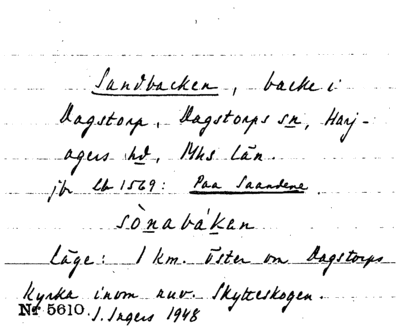 Sandbacken, backe i
Dagstorp, Dagstorps sn, Harj-
agers hd, Mhs län.
jfr Lb 1569: Paa Saandene.
sònabákan
Läge: 1 km. öster om Dagstorps
kyrka inom nuv. Skytteskogen.
Nr 5610. I. Ingers 1948